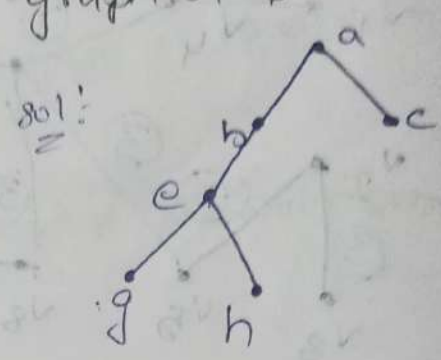 sol:
a
b
c
e
g
h